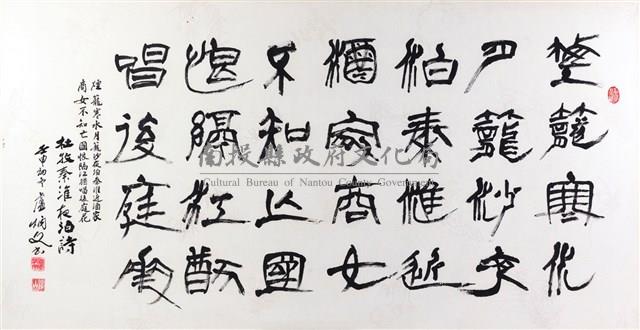 煙籠寒水
月籠沙夜
泊秦淮近
酒家商女
不知亡國
恨隔江猶
唱後庭花
煙籠寒水月籠沙夜泊秦淮近酒家
商女不知亡國恨隔江猶唱後庭花
杜牧秦淮夜泊詩
壬申初 盧炳文書
南投縣政府文化局
Cultural Bureau of Nantou County Government